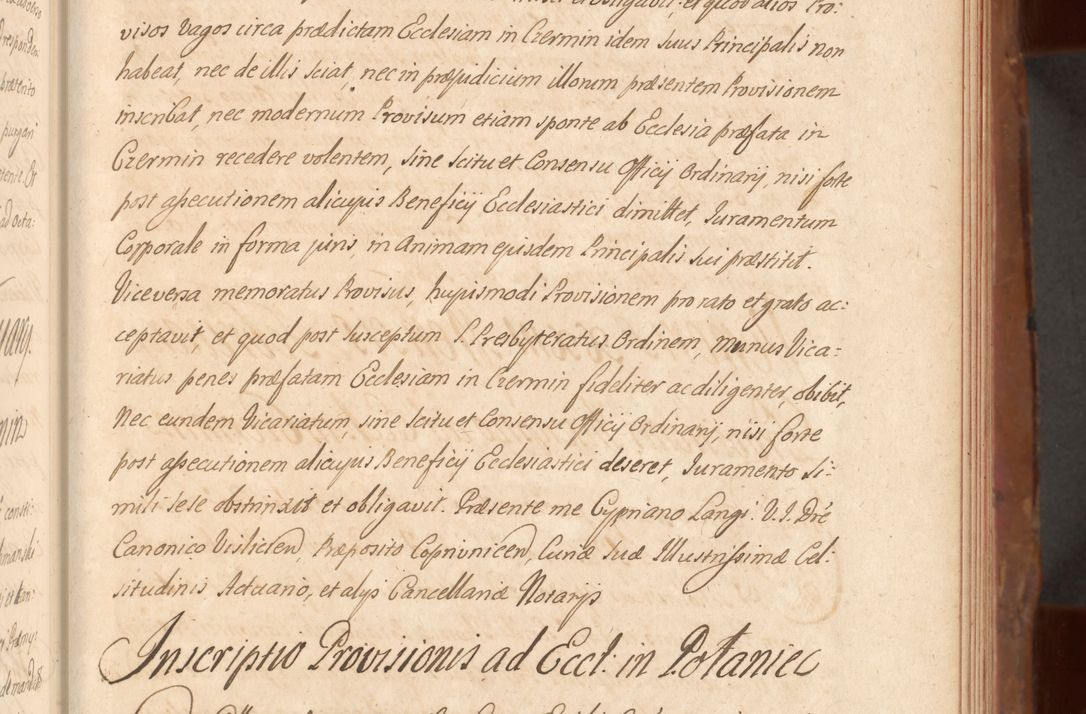 et quod alios Pro:
visos vagos circa prædictam Ecclesiam in Czermin idem suus Principalis non
habeat, nec de illis sciat, nec in præjudicium illorum præsentem Provisionem
inscribat, nec modernum Provisum etiam sponte ab Ecclesia præfata in
Czermin recedere volentem, sine scitu et Consensu Officij Ordinarij, nisi forte
post assecutionem alicujus Beneficij Ecclesiastici dimittet, Iuramentum
Corporale in forma juris, in Animam ejusdem Principalis sui præstitit.
Viceversa memoratus Provisus, hujusmodi Provisionem pro rato et grato ac:
ceptavit, et quod post susceptum S. Presbyteratus Ordinem, munus Vica:
riatus penes præfatam Ecclesiam in Czermin fideliter ac diligenter, obibit,
Nec eundem Vicariatum, sine scitu et Consensu Officij Ordinarij, nisi forte
post assecutionem alicujus Beneficij Ecclesiastici deseret, Iuramento si:
mili sese obstrinxit et obligavit. Præsente me Cypriano Langi: V. I. Dre
Canonico Vislicien, Præposito Coprivnicen, Curiæ suæ Illustrissimæ Cel:
situdinis Actuario, et alijs Cancellariæ Notarijs
Inscriptio Provisionis ad Eccl: in Połaniec